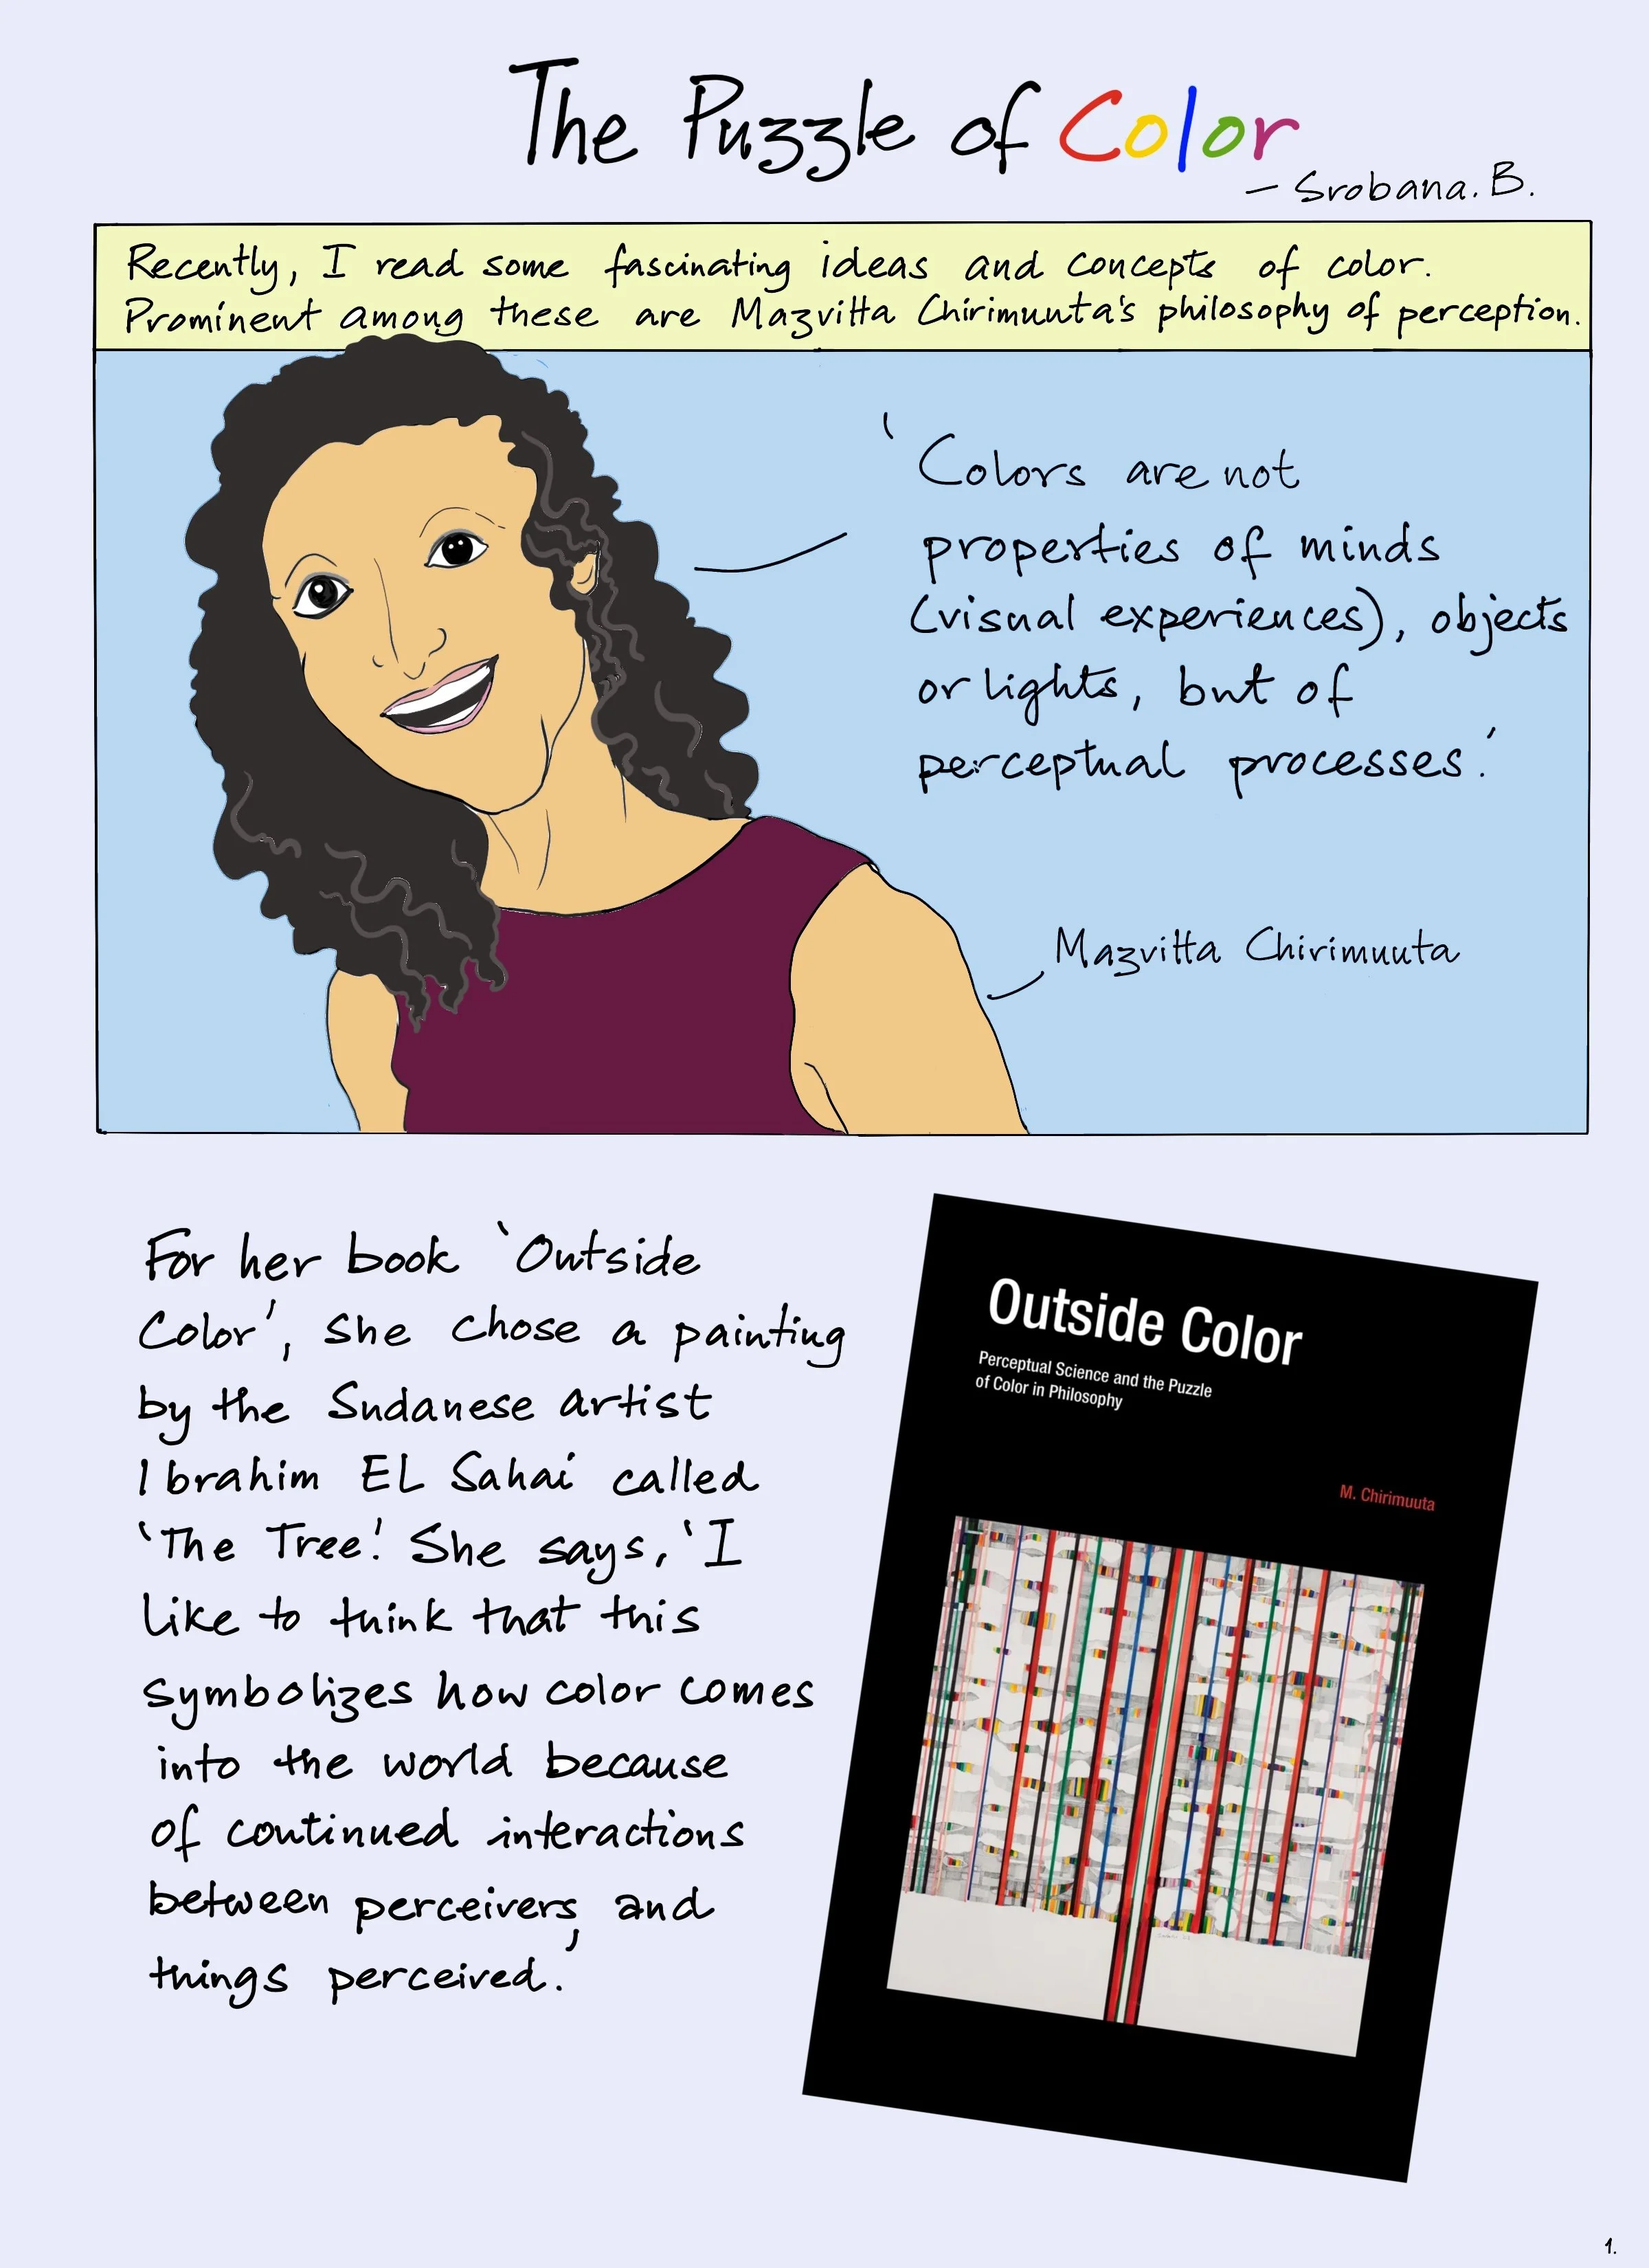 The Puzzle of Color
– Srobana. B.
Recently, I read some fascinating ideas and concepts of color.
Prominent among these are Mazvitta Chirimuuta's philosophy of perception.
'Colors are not
properties of minds
(visual experiences), objects
or lights, but of
perceptual processes.'
Mazvitta Chirimuuta
For her book 'Outside
Color', she chose a painting
by the Sudanese artist
Ibrahim EL Sahai called
'The Tree'. She says, 'I
like to think that this
symbolizes how color comes
into the world because
of continued interactions
between perceivers, and
things perceived.'
Outside Color
Perceptual Science and the Puzzle
of Color in Philosophy
M. Chirimuuta
1.